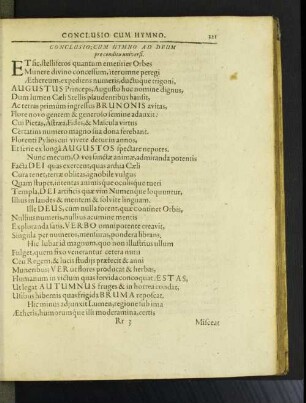 CONCLUSIO CUM HYMNO. 321
CONCLUSIO, CUM HYMNO AD DEUM
pro condito universi.
ET sic, stelliferos quantum emetirier Orbes
Munere divino concessum, iter omne peregi
Æthereum, expediens numeris, ductuque trigoni,
AUGUSTUS Princeps, Augusto huc nomine dignus,
Dum lumen Cæli Stellis plaudentibus hausit,
Ac tetras primum ingressus BRUNONIS avitas,
Flore novo gentem & generoso semine adauxit:
Cui Pietas, Astræa, Fides, & Mascula virtus
Certatim numero magno sua dona ferebant.
Florent Pylios cui vivere detur in annos,
Et serie ex longa AUGUSTOS spectare nepotes.
Nunc mecum, O vos sanctæ animæ, admiranda potentis
Facta DEI quas exercent, quas ardua Cæli
Cura tenet, terræ oblitas, ignobile vulgus
Quam stupet, intentas auresque oculisque tueri
Templa, DEI artificis quæ vim Numenque loquuntur,
Illius in laudes & mentem & solvite linguam.
Ille DEUS, cum nulla forent, quæ continet Orbis,
Nullius numeris, nullius acumine mentis
Exploranda satis, VERBO omnipotente creavit,
Singula per numeros, mensuras, pondera librans,
Hic Iubar id magnum, quo non illustrius ullum
Fulget, quem fixo venerantur cetera nutu
Ceu Regem, & lucis studiis præfecit & anni
Muneribus: VER ut flores producat & herbas,
Humanum in victum quas fervida concoquat ÆSTAS,
Ut legat AUTUMNUS fruges & in horrea condat,
Utilius hibernis quas frigida BRUMA reposcat.
Hic minus adjunxit Lumen, regione sub ima
Ætheris, humorum que illi moderamina, certis
Rr 3 Misceat